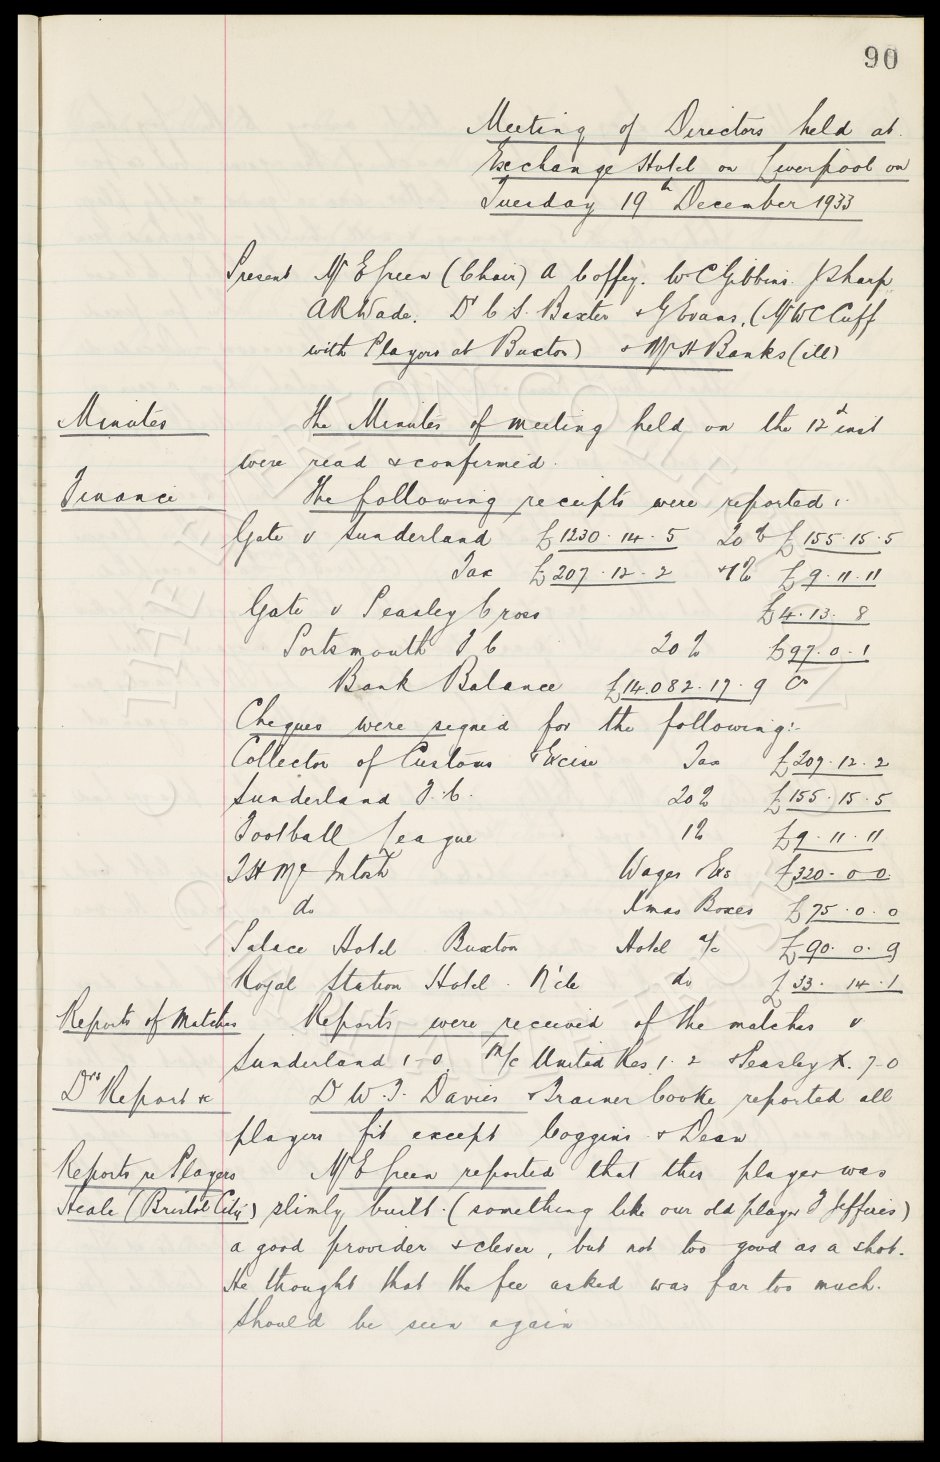 90
Meeting of Directors held at
Exchange Hotel on Liverpool on
Tuesday 19th December 1933
Present Mr E Green (Chair) A Coffey. W C Gibbins. J Sharp
A R Wade. Dr C S. Baxter & G Evans, (Mr W C Cuff
with Players at Buxton) & Mr H Banks (ill)
Minutes The Minutes of meeting held on the 12th inst
were read & confirmed.
Finance The following receipts were reported:
Gate v Sunderland £1230.14.5 20% £155.15.5
Tax £207.12.2 & 1% £9.11.11
Gate v Peasley Cross £4.13.8
Portsmouth F C 20% £97.0.1
Bank Balance £14.082.17.9 Cr
Cheques were signed for the following:-
Collector of Customs & Excise Tax £207.12.2
Sunderland F.C. 20% £155.15.5
Football League 1% £9.11.11
T H Mc Intosh Wages Exs £320-0 0
do Xmas Boxes £75.0.0
Palace Hotel Buxton Hotel a/c £90.0.9
Royal Station Hotel. N'cle do £33.14.1
Reports of Matches Reports were received of the matches v
Sunderland 1-0. M/c United Res. 1.2 & Peasley X. 7-0
Drs Report &c D W. J. Davies & Trainer Cooke reported all
players fit except Coggins & Dean
Reports re Players Mr E Green reported that this player was
Heale (Bristol City) slimly built. (something like our old player T Jefferies)
a good provider & clever, but not too good as a shot.
He thought that the fee asked was far too much.
Should be seen again